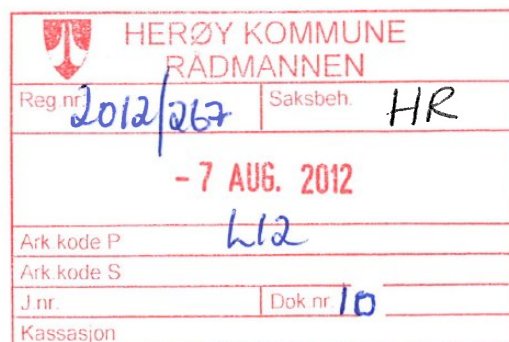 HERØY KOMMUNE
RÅDMANNEN
Reg.nr. 2012/267 Saksbeh. HR
- 7 AUG. 2012
Ark.kode P L12
Ark.kode S
J.nr. Dok.nr. 10
Kassasjon